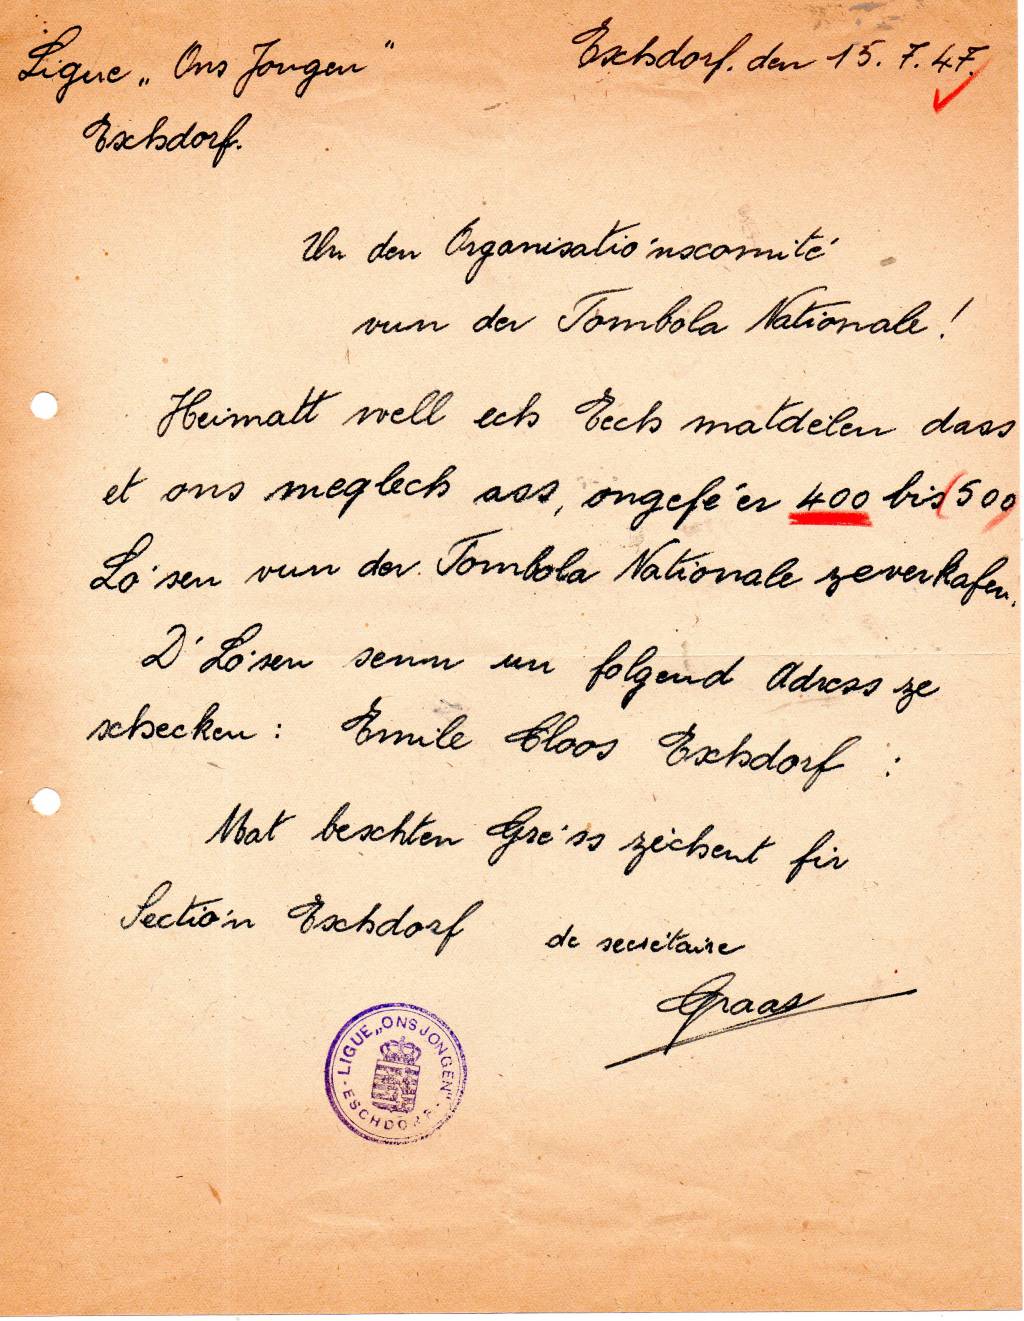 Ligue „Ons Jongen"
Eschdorf. den 15. 7. 47.
Eschdorf.
Un den Organisatio'nscomité
vun der Tombola Nationale!
Heimatt well ech Iech matdélen dass
et ons meglech ass, ongefé'er 400 bis (500)
Lo'sen vun der Tombola Nationale ze verkafen.
D'Lo'sen senn un folgend Adress ze
schecken: Emile Cloos Eschdorf :
Mat beschten Gre'ss zéchent fir
Sectio'n Eschdorf
de secrétaire
Graas
LIGUE „ONS JONGEN"
ESCHDORF